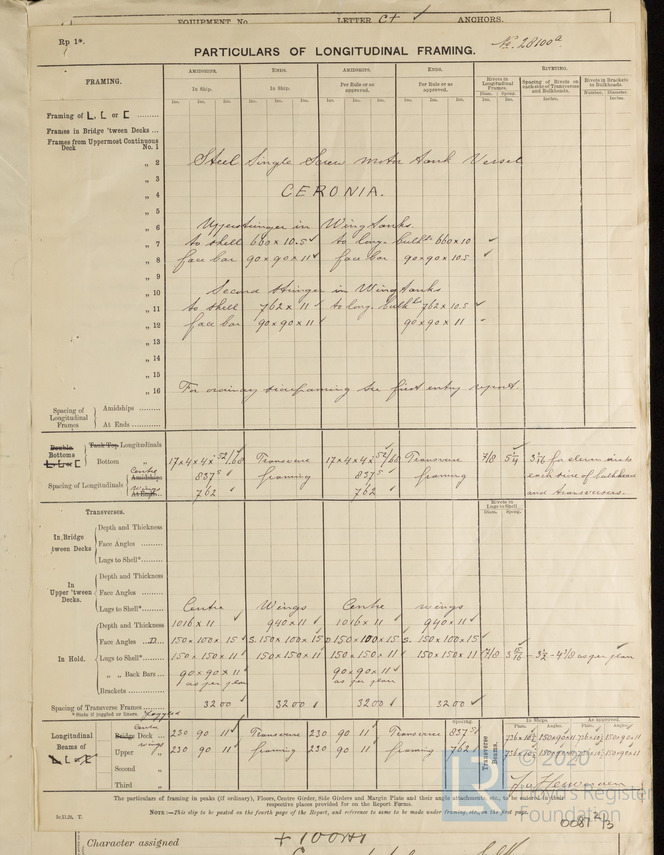 EQUIPMENT No. LETTER C+ ANCHORS.
Rp 1*.
PARTICULARS OF LONGITUDINAL FRAMING.
No. 28100a
AMIDSHIPS. ENDS. AMIDSHIPS. ENDS. RIVETING.
FRAMING.
In Ship. In Ship. Per Rule or as approved. Per Rule or as approved.
Rivets in Longitudinal Frames. Spacing of Rivets on each side of Transverses and Bulkheads. Rivets in Brackets to Bulkheads.
Diam. Spcng. Inches. Number. Diameter Inches.
Ins. Ins. Ins. Ins. Ins. Ins. Ins. Ins. Ins. Ins. Ins. Ins.
Framing of L, L or [
Frames in Bridge 'tween Decks ...
Frames from Uppermost Continuous Deck No. 1
„ 2 Steel Single Screw Motor Tank Vessel
„ 3
„ 4 CERONIA.
„ 5
„ 6 Upper stringer in Wing tanks.
„ 7 to shell 660 x 10.5 ✓ to long. bulkh. 660 x 10 ✓
„ 8 face bar 90 x 90 x 11 ✓ face bar 90 x 90 x 10.5 ✓
„ 9
„ 10 Second stringer in Wing tanks
„ 11 to shell 762 x 11 ✓ to long. bulkh. 762 x 10.5 ✓
„ 12 face bar 90 x 90 x 11 ✓ 90 x 90 x 11
„ 13
„ 14
„ 15
„ 16 For ordinary transframing see first entry report.
Spacing of Longitudinal Frames
Amidships
At Ends
Double Bottoms L, L or [
Tank Top Longitudinals
Bottom „ 17 x 4 x 4 x .52/.68 Transverse 17 x 4 x 4 x .52/.68 Transverse 7/8 5 1/4 3 1/16 for eleven rivets
Spacing of Longitudinals
Centre Amidships 837.5 ✓ framing 837.5 framing each side of bulkheads
Wings At Ends 762 ✓ 762 ✓ and transverses.
Rivets in Lugs to Shell
Diam. Spcng.
Transverses.
In Bridge 'tween Decks
Depth and Thickness
Face Angles
Lugs to Shell*
In Upper 'tween Decks.
Depth and Thickness
Face Angles
Lugs to Shell* Centre Wings Centre wings
In Hold.
Depth and Thickness 1016 x 11 ✓ 940 x 11 ✓ 1016 x 11 ✓ 940 x 11 ✓
Face Angles D. 150 x 100 x 15 ✓ S. 150 x 100 x 15 ✓ D 150 x 100 x 15 ✓ S. 150 x 100 x 15 ✓
Lugs to Shell* 150 x 150 x 11 ✓ 150 x 150 x 11 ✓ 150 x 150 x 11 ✓ 150 x 150 x 11 ✓ 7/8 3 15/16 - 3 1/2 - 4 7/8 as per plan
„ „ Back Bars 90 x 90 x 11 ✓ 90 x 90 x 11 ✓
Brackets as per plan as per plan
Spacing of Transverse Frames 3200 ✓ 3200 ✓ 3200 ✓ 3200 ✓
*State if joggled or liners. Joggled
Spacing. In Ships. As Approved.
Plate. Angles. Plate. Angles.
Longitudinal Beams of L, L or [
Centre Bridge Deck 230 90 11 ✓ Transverse 230 90 11 ✓ Transverse 837.5
wings Upper „ 230 90 11 ✓ framing 230 90 11 ✓ framing 762
Second „
Third „
Transverse Beams.
The particulars of framing in peaks (if ordinary), Floors, Centre Girder, Side Girders and Margin Plate and their angle attachments, etc., to be entered in their
respective places provided for on the Report Forms.
NOTE:—This slip to be posted on the fourth page of the Report, and reference to same to be made under framing, etc., on the first page.
© 2020
Lloyd's Register
Foundation
0081 2/3
Character assigned +100A1